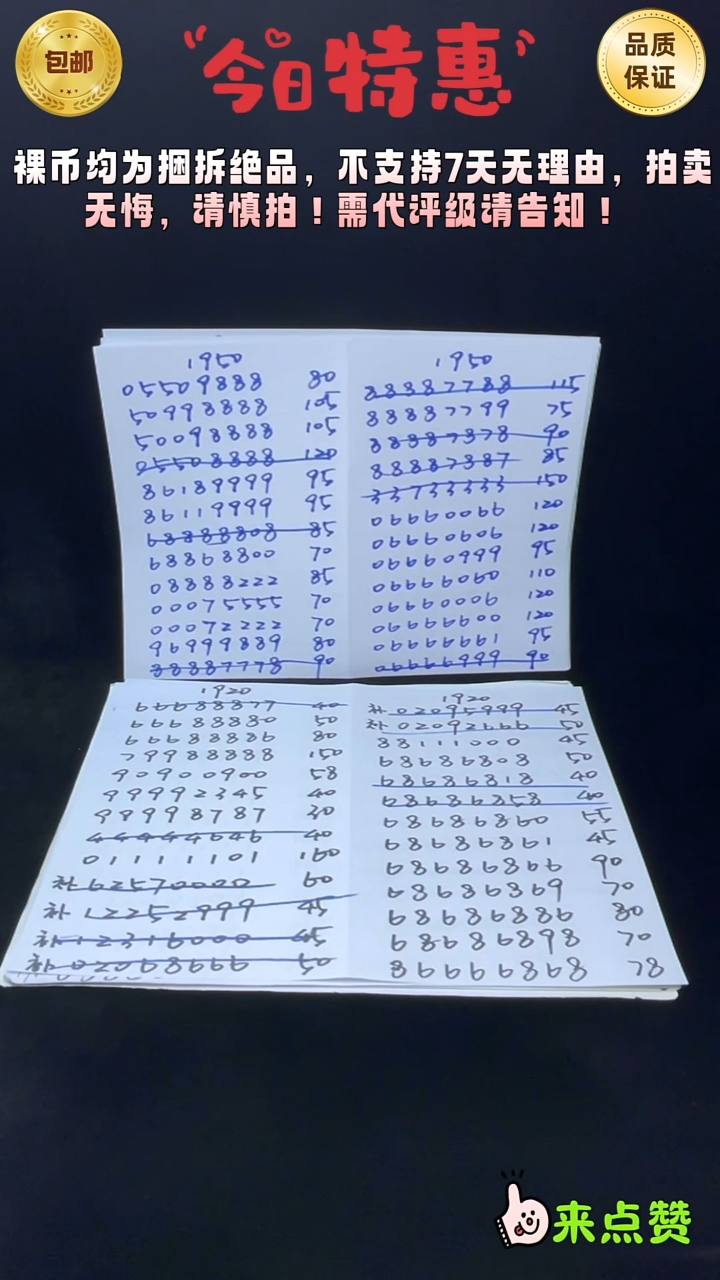 包邮
今日特惠
品质
保证
裸币均为捆拆绝品，不支持7天无理由，拍卖
无悔，请慎拍！需代评级请告知！
1950
05509888 80
50998888 105
50098888 105
05508888 120
86189999 95
86119999 95
68888808 85
68868800 70
08888222 85
00075555 70
00072222 70
96999889 80
88887778 90
1950
88887788 115
88887799 75
88887878 90
88887887 85
33733333 150
06660066 120
06660606 120
06660999 95
06666060 110
06660006 120
06666600 120
06666661 95
06666999 90
1920
66688877 40
66688880 50
66688886 80
79988888 150
90900900 58
99992345 40
99998787 30
44444646 40
01111101 160
补62570000 60
补12252999 45
补12316000 45
补02068666 50
1920
补02095999 45
补02092666 50
88111000 45
68686808 50
68686818 40
68686858 40
68686860 55
68686861 45
68686866 90
68686869 70
68686886 80
68686898 70
86666868 78
来点赞